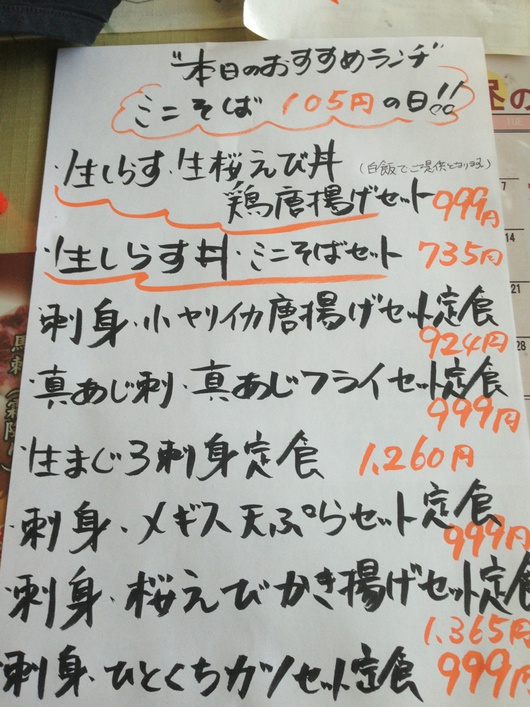 "本日のおすすめランチ"
ミニそば 105円の日!!
・生しらす・生桜えび丼
(白飯でご提供となります)
鶏唐揚げセット 999円
・生しらす丼・ミニそばセット 735円
・刺身・小ヤリイカ唐揚げセット定食
924円
・真あじ刺・真あじフライセット定食
999円
・生まぐろ刺身定食 1,260円
・刺身・メギス天ぷらセット定食
999円
・刺身・桜えびかき揚げセット定食
1,365円
・刺身・ひとくちカツセット定食 999円
の
14
28
馬刺